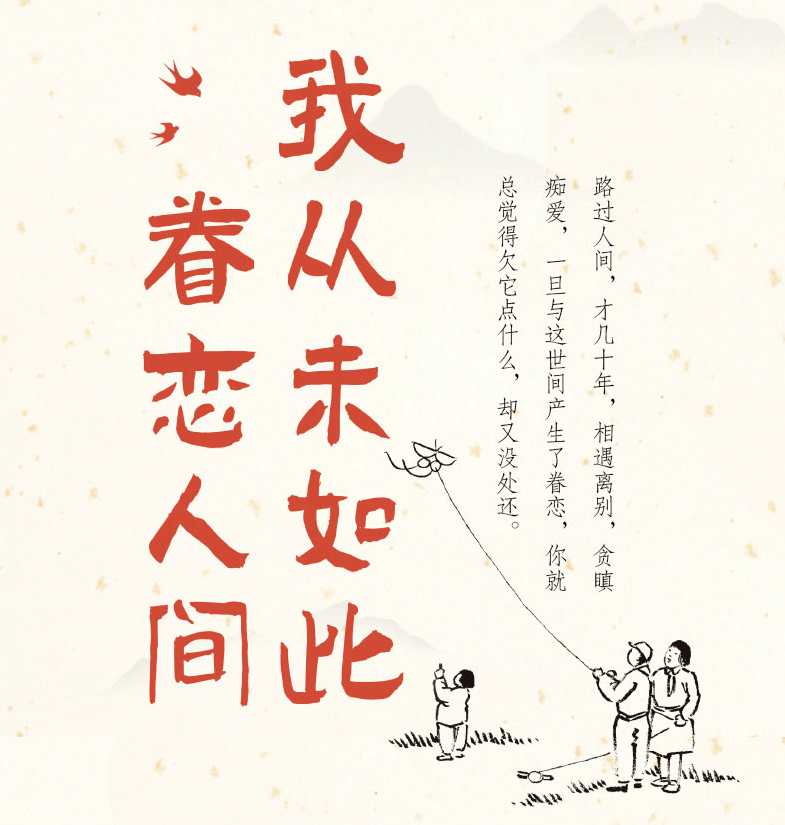 我从未如此
眷恋人间
路过人间，才几十年，相遇离别，贪瞋
痴爱，一旦与这世间产生了眷恋，你就
总觉得欠它点什么，却又没处还。